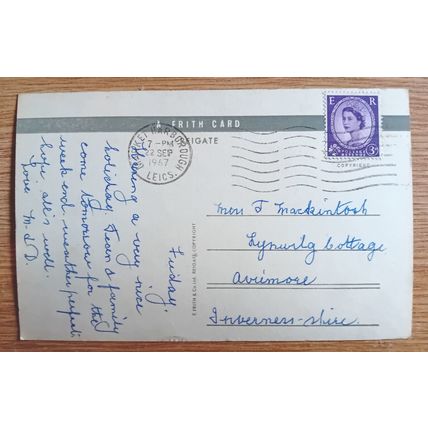 A FRITH CARD
REIGATE
MARKET HARBOROUGH
7-PM
22 SEP
1967
LEICS.
E R
POSTAGE
REVENUE
3D
COPYRIGHT
Friday.
Having a very nice
holiday, Jean & family
come tomorrow for the
week end. weather perfect
hope all's well.
Love M & D.
© FRITH & Co Ltd. REIGATE, COPYRIGHT
Mrs F Mackintosh
Lynwilg Cottage
Aviemore
Inverness-shire.